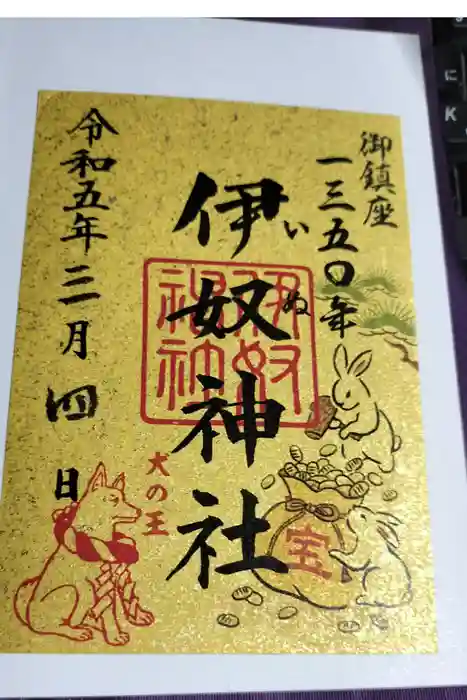 御鎮座
一三五〇年
伊奴神社
いぬ
伊奴
神社
令和五年三月四日
犬の王
宝
に
K